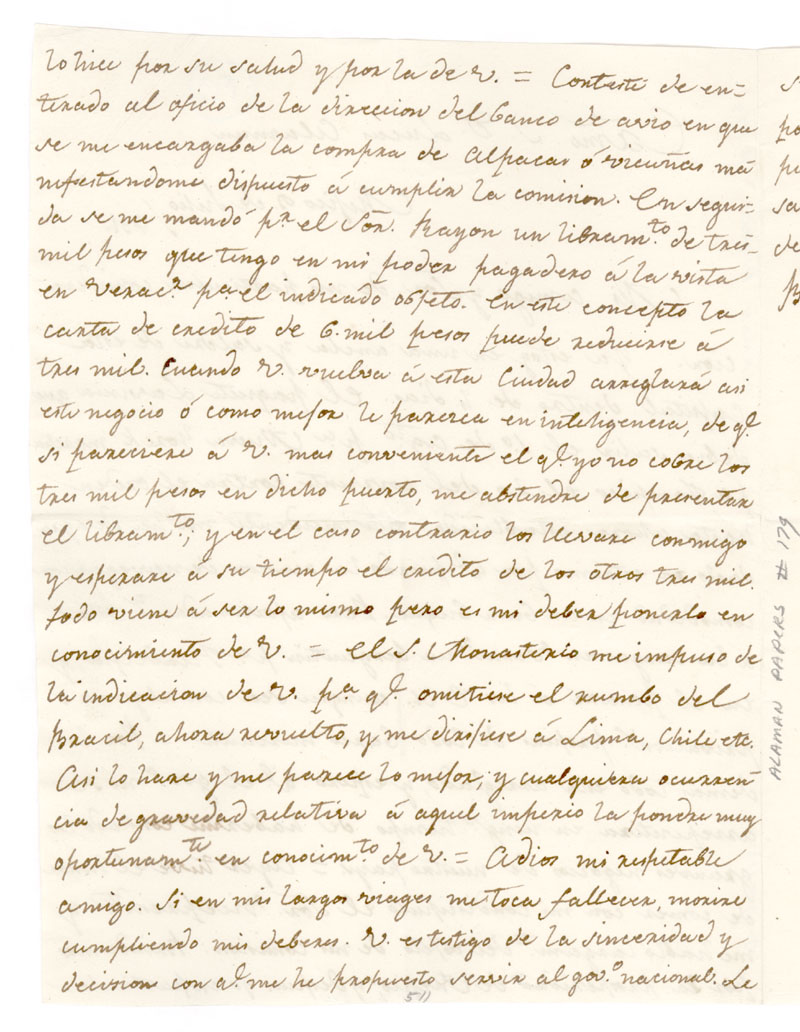 lo hice por su salud y por la de V. = Contesté de en=
terado al oficio de la direccion del banco de avio en que
se me encargaba la compra de Alpacas ó vicuñas ma
nifestandome dispuesto á cumplir la comision. En segui=
da se me mandó pr. el Sõr. Rayon un libramto. de tres=
mil pesos que tengo en mi poder pagadero á la vista
en Veracz. pa. el indicado objeto. En este concepto la
carta de credito de 6. mil pesos puede reducirse á
tres mil. Cuando V. vuelva á esta Ciudad arreglará asi
este negocio ó como mejor le parezca en inteligencia, de q.
si pareciere á V. mas conveniente el q. yo no cobre los
tres mil pesos en dicho puerto, me abstendre de presentar
el libramto.; y en el caso contrario los llevare conmigo
y esperare á su tiempo el credito de los otros tres mil.
Todo viene á ser lo mismo pero es mi deber ponerlo en
conocimiento de V. = El S. Monasterio me impuso de
la indicacion de V. pa. q. omitiese el rumbo del
Bracil, ahora revuelto, y me dirijiese á Lima, Chile etc.
Asi lo hare y me parece lo mejor; y cualquiera ocurren=
cia de gravedad relativa á aquel imperio la pondre muy
oportunamte. en conocimto. de V. = Adios mi respetable
amigo. Si en mis largos viages me toca fallecer, morire
cumpliendo mis deberes. V. es testigo de la sinceridad y
decision con q. me he propuesto servir al govo. nacional. Le
511
ALAMAN PAPERS # 179